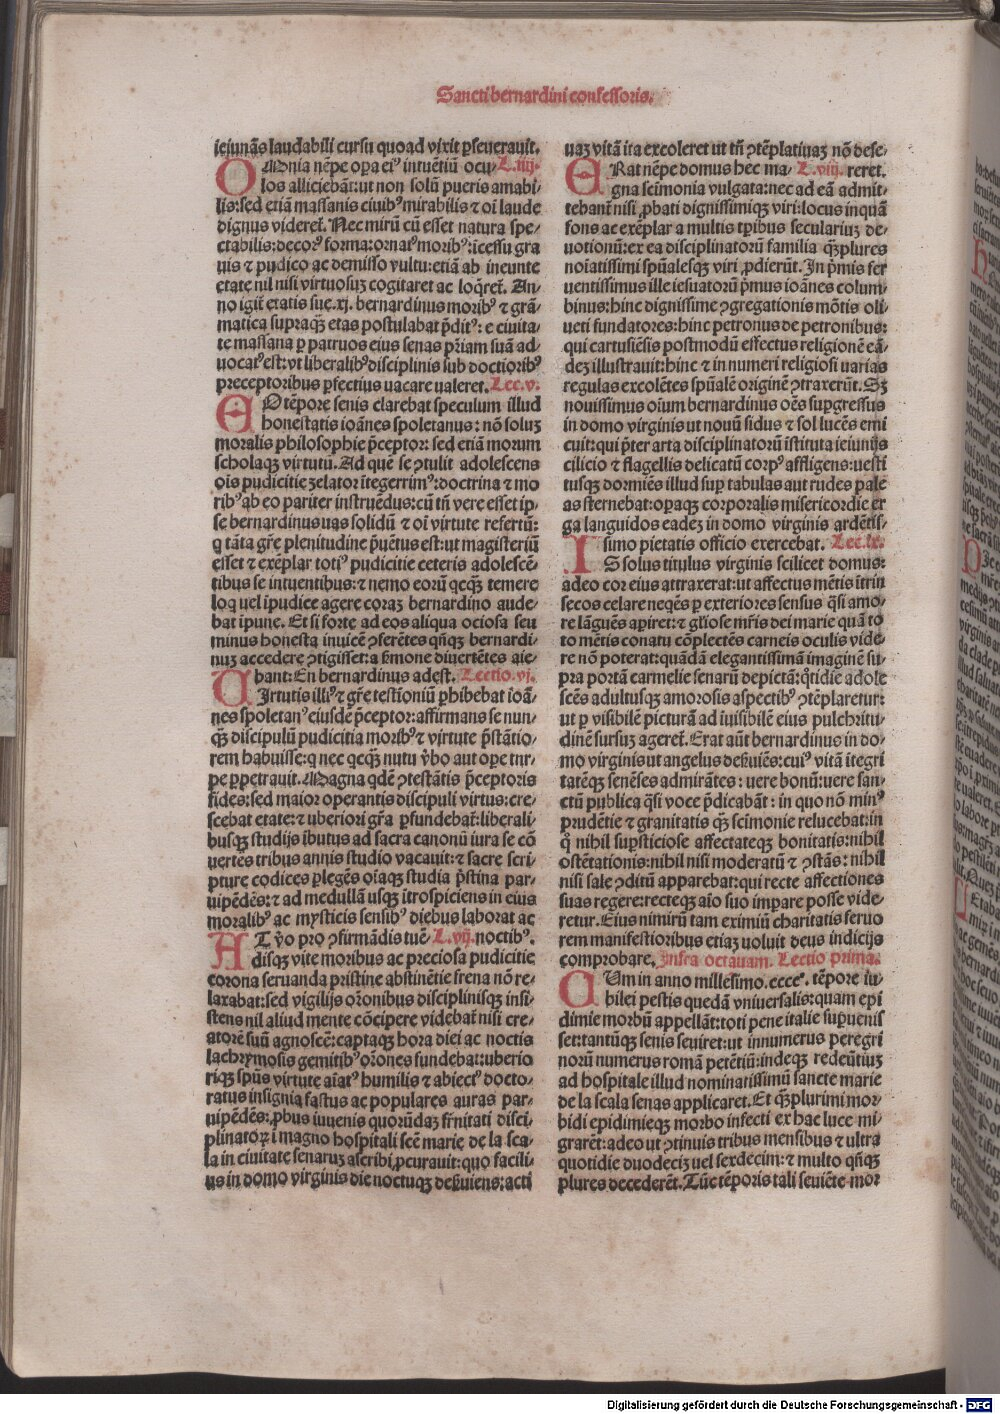 Sancti bernardini confessoris.
ieiunãs laudabili cursu quoad vixit ꝑseverauit.
OMnia nẽpe oꝑa eiꝰ intuẽtiũ ocu- L.iiij.
los alliciebãt: ut non solũ pueris amabi
lis: sed etiã massanis ciuibꝰ mirabilis ⁊ oĩ laude
dignus videret̃. Nec mirũ cũ esset natura spe-
ctabilis: decorꝰ forma: ornatꝰ moribꝰ: ĩcessu gra
uis ⁊ pudico ac demisso vultu: etiã ab ineunte
etate nil nisi virtuosuꝫ cogitaret ac loq̃ret̃. An-
no igit̃ etatis sue .xj. bernardinus moribꝰ ⁊ grã-
matica supraq̃ꝫ etas postulabat p̃ditꝰ: e ciuita-
te massana ꝑ patruos eius senas pr̃iam suã ad-
uocatꝰ est: vt liberalibꝰ disciplinis sub doctioribꝰ
preceptoribus ꝑfectius uacare ualeret. Lec.v.
EO tẽpore senis clarebat speculum illud
honestatis ioãnes spoletanus: nõ soluꝫ
moralis philosophie p̃ceptor: sed etiã morum
scholaqꝫ virtutũ. Ad quẽ se ꝯtulit adolescens
oĩs pudicitie zelator ĩtegerrimꝰ: doctrina ⁊ mo
ribꝰ ab eo pariter instruẽdus: cũ tñ vere esset ip-
se bernardinus uas solidũ ⁊ oĩ virtute refertũ:
q̃ tãta gr̃e plenitudine p̃uẽtus est: ut magisteriũ
esset ⁊ exẽplar totiꝰ pudicitie ceteris adolescẽ-
tibus se intuentibus: ⁊ nemo eorũ qcq̃ꝫ temere
loq̃ uel ĩpudice agere coraꝫ bernardino aude-
bat ĩpune. Et si forte ad eos aliqua ociosa seu
minus honesta inuicẽ ꝯferẽtes qñqꝫ bernardi-
nuꝫ accedere ꝯtigisset: a ßmone diuertẽtes aie-
bant: En bernardinus adest. Lectio.vj.
VIrtutis illiꝰ ⁊ gr̃e testioniũ ꝑhibebat ioã-
nes spoletanꝰ eiusdẽ p̃ceptor: affirmans se nun-
q̃ꝫ discipulũ pudicitia moribꝰ ⁊ virtute p̃stãtio-
rem habuisse: q̃ nec qcq̃ꝫ nutu v̾bo aut oꝑe tur-
pe ꝑpetrauit. Magna qdẽ ꝯtestãtis p̃ceptoris
fides: sed maior operantis discipuli virtus: cre-
scebat etate: ⁊ uberiori gr̃a ꝑfundebat̃: liberali-
busqꝫ studijs ĩbutus ad sacra canonũ iura se cõ
uertẽs tribus annis studio vacauit: ⁊ sacre scri-
pture codices ꝑlegẽs oĩaqꝫ studia p̃stina par-
uipẽdẽs: ⁊ ad medullã usqꝫ ĩtrospiciens in eius
moralibꝰ ac mysticis sensibꝰ diebus laborat ac
AT v̾o pro ꝯfirmãdis tuẽ- L.vij. noctibꝰ.
disqꝫ vite moribus ac preciosa pudicitie
corona seruanda pristine abstinẽtie frena nõ re-
laxabat: sed vigilijs or̃onibus disciplinisqꝫ insi-
stens nil aliud mente cõcipere videbat̃ nisi cre-
atorẽ suũ agnoscẽ: captaqꝫ hora diei ac noctis
lachrymosis gemitibꝰ or̃ones fundebat: uberio
riqꝫ spũs virtute aĩatꝰ humilis ⁊ abiectꝰ docto-
ratus insignia fastus ac populares auras par-
uipẽdẽs: ꝓbus iuuenis quorũdaꝫ fr̃nitati disci-
plinatoꝝ ĩ magno hospitali scẽ marie de la sca-
la in ciuitate senaruꝫ ascribi ꝓcurauit: quo facili-
us in domo virginis die noctuqꝫ deßuiens: acti
uaꝫ vitã ita excoleret ut tñ ꝯtẽplatiuaꝫ nõ dese-
ERat nẽpe domus hec ma- L.viij. reret.
gna scĩmonia vulgata: nec ad eã admit-
tebant̃ nisi ꝓbati dignissimiqꝫ viri: locus inquã
fons ac exẽplar a multis tꝑibus seculariuꝫ de-
uotionũ: ex ea disciplinatorũ familia q̃ꝫplures
noĩatissimi spũalesqꝫ viri ꝓdierũt. In p̃mis fer
uentissimus ille iesuatorũ p̃mus ioãnes colum-
binus: hinc dignissime ꝯgregationis mõtis oli-
ueti fundatores: hinc petronus de petronibus:
qui cartusiẽsis postmodũ effectus religionẽ eã-
deꝫ illustrauit: hinc ⁊ in numeri religiosi uarias
regulas excolẽtes spũalẽ originẽ ꝯtraxerũt. Sꝫ
nouissimus oĩum bernardinus oẽs suꝑgressus
in domo virginis ut nouũ sidus ⁊ sol lucẽs emi
cuit: qui p̃ter arta disciplinatorũ ĩstituta ieiunijs
cilicio ⁊ flagellis delicatũ corpꝰ affligens: uesti
tusqꝫ dormiẽs illud suꝑ tabulas aut rudes pale
as sternebat: oꝑaqꝫ corporalis misericordie er
ga languidos eadeꝫ in domo virginis ardẽtis-
simo pietatis officio exercebat. Lec.ix.
IS solus titulus virginis scilicet domus:
adeo cor eius attraxerat: ut affectus mẽtis ĩtrin
secos celare neqẽs ꝑ exteriores sensus q̃si amo-
re lãguẽs aꝑiret: ⁊ gl̃iose mr̃is dei marie quã to
to mẽtis conatu cõplectẽs carneis oculis vide-
re nõ poterat: quãdã elegantissimã imaginẽ su-
pra portã carmelie senarũ depictã: q̃tidie adole
scẽs adultusqꝫ amorosis aspectibꝰ ꝯtẽplaretur:
ut ꝑ visibilẽ picturã ad ĩuisibilẽ eius pulchritu-
dinẽ sursuꝫ ageret̃. Erat aũt bernardinus in do-
mo virginis ut angelus deßuiẽs: cuiꝰ vitã ĩtegri
tatẽqꝫ senẽses admirãtes: uere bonũ: uere san-
ctũ publica q̃si voce p̃dicabãt: in quo nõ minꝰ
prudẽtie ⁊ grauitatis q̃ꝫ scĩmonie relucebat: in
q̊ nihil suꝑsticiose affectateqꝫ bonitatis: nihil
ostẽtationis: nihil nisi moderatũ ⁊ ꝯstãs: nihil
nisi sale ꝯditũ apparebat: qui recte affectiones
suas regere: recteqꝫ aĩo suo imꝑare posse vide-
retur. Eius nimirũ tam eximiũ charitatis feruo
rem manifestioribus etiaꝫ uoluit deus indicijs
comprobare. Infra octauam. Lectio prima.
CUm in anno millesimo.cccc°. tẽpore iu-
bilei pestis quedã vniuersalis: quam epi
dimie morbũ appellãt: toti pene italie suꝑuenis
set: tantũqꝫ senis seuiret: ut innumerus peregri
norũ numerus romã petẽtiũ: indeqꝫ redeũtiuꝫ
ad hospitale illud nominatissimũ sancte marie
de la scala senas applicaret. Et q̃ꝫplurimi mor-
bidi epidimieqꝫ morbo infecti ex hac luce mi-
grarẽt: adeo ut ꝯtinuis tribus mensibus ⁊ ultra
quotidie duodecĩꝫ uel sexdecim: ⁊ multo qñqꝫ
plures decederẽt. Tũc tẽporis tali seuiẽte mor
Digitalisierung gefördert durch die Deutsche Forschungsgemeinschaft - DFG